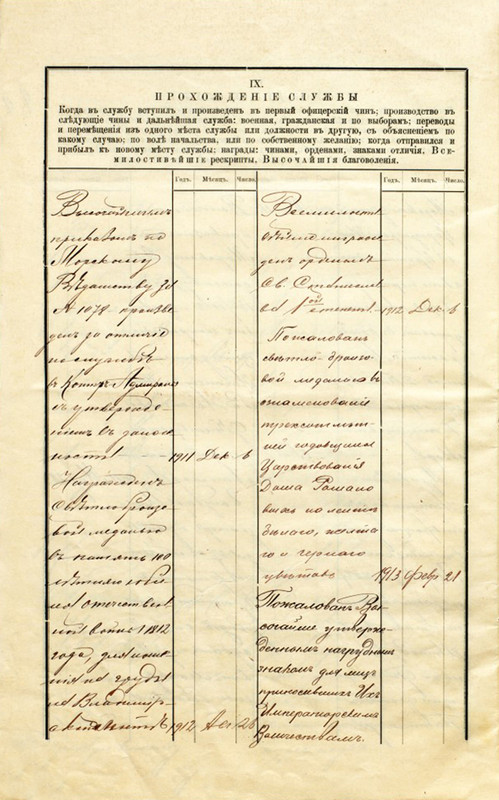 IX.
ПРОХОЖДЕНІЕ СЛУЖБЫ
Когда въ службу вступилъ и произведенъ въ первый офицерскій чинъ; производство въ
слѣдующіе чины и дальнѣйшая служба: военная, гражданская и по выборамъ; переводы
и перемѣщенія изъ одного мѣста службы или должности въ другую, съ объясненіемъ по
какому случаю: по волѣ начальства, или по собственному желанію; когда отправился и
прибылъ къ новому мѣсту службы; награды: чинами, орденами, знаками отличія, Все-
милостивѣйшіе рескрипты, Высочайшія благоволенія.
Годъ. Мѣсяцъ. Число.
Высочайшимъ
приказомъ по
Морскому
Вѣдомству за
№ 1078 произве
денъ за отличіе
по службѣ
въ Контръ-Адмиралы
съ утвержде-
ніемъ въ долж
ности 1911 Дек 6
Награжденъ
свѣтло бронзо
вой медалью
въ память 100
лѣтняго юбил
отечествен
ной войны 1812
года, для ноше
нія на груди
на Владимір-
ской лентѣ 1912 Авг 26
Годъ. Мѣсяцъ. Число.
Всемилости
вѣйше награж
денъ орденомъ
Св. Станислава
1ой степени 1912 Дек 6
Пожалованъ
свѣтло-бронзо
вой медалью въ
ознаменованіе
трехсотлѣт
ней годовщины
Царствованія
Дома Романо
выхъ на лентѣ
бѣлаго, желта
го и чернаго
цвѣтовъ 1913 февр 21
Пожалованъ Вы-
сочайше утверж-
деннымъ нагруднымъ
знакомъ для лицъ
приносившихъ Ихъ
Императорскимъ
Величествамъ.